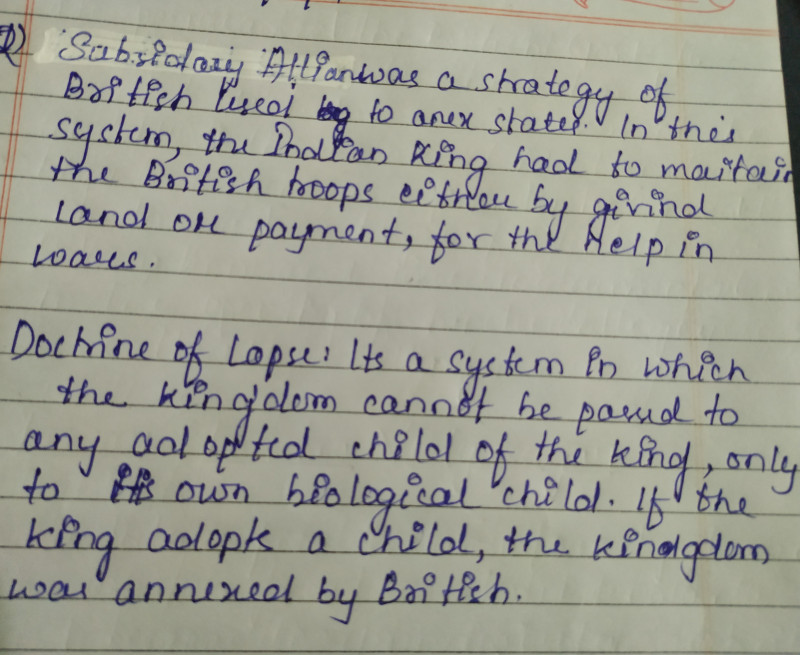 2) Subsidary Allianwas a strategy of
British used to anex states. In this
system, the Indian King had to maitain
the British troops either by givind
land or payment, for the Help in
wars.
Doctrine of Lapse: Its a system in which
the kingdom cannot be passed to
any adopted child of the king, only
to its own biological child. If the
king adopts a child, the kindgdom
was annexed by British.